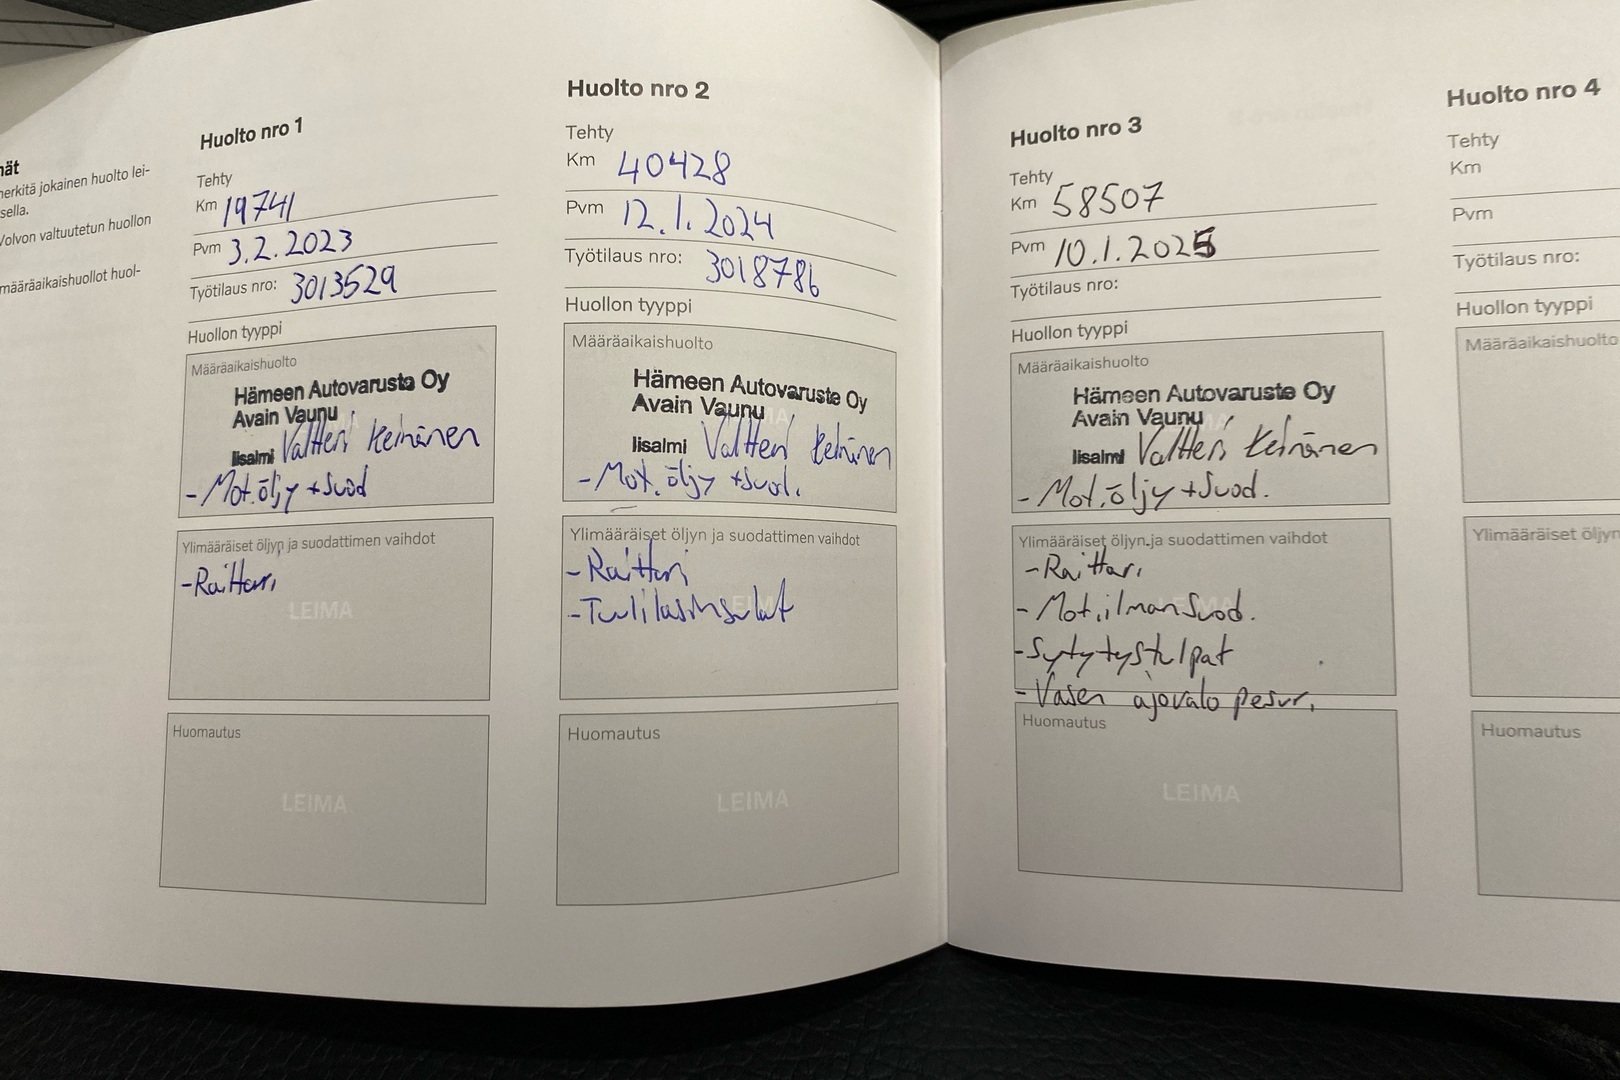 nät
merkitä jokainen huolto lei-
sella.
Volvon valtuutetun huollon
määräaikaishuollot huol-
Huolto nro 1
Tehty
Km 19741
Pvm 3.2.2023
Työtilaus nro: 3013529
Huollon tyyppi
Määräaikaishuolto
Hämeen Autovaruste Oy
Avain Vaunu
Iisalmi Valtteri Keinänen
- Mot.öljy + Suod
Ylimääräiset öljyn ja suodattimen vaihdot
- Raittari
LEIMA
Huomautus
LEIMA
Huolto nro 2
Tehty
Km 40428
Pvm 12.1.2024
Työtilaus nro: 3018786
Huollon tyyppi
Määräaikaishuolto
Hämeen Autovaruste Oy
Avain Vaunu
Iisalmi Valtteri Keinänen
- Mot.öljy + Suod.
Ylimääräiset öljyn ja suodattimen vaihdot
- Raittari
- Tuulilasinsulat
Huomautus
LEIMA
Huolto nro 3
Tehty
Km 58507
Pvm 10.1.2025
Työtilaus nro:
Huollon tyyppi
Määräaikaishuolto
Hämeen Autovaruste Oy
Avain Vaunu
Iisalmi Valtteri Keinänen
- Mot.öljy + Suod.
Ylimääräiset öljyn ja suodattimen vaihdot
- Raittari
- Mot.ilmansuod.
- Sytytystulpat
- Vasen ajovalo pesur.
Huomautus
LEIMA
Huolto nro 4
Tehty
Km
Pvm
Työtilaus nro:
Huollon tyyppi
Määräaikaishuolto
Ylimääräiset öljyn
Huomautus